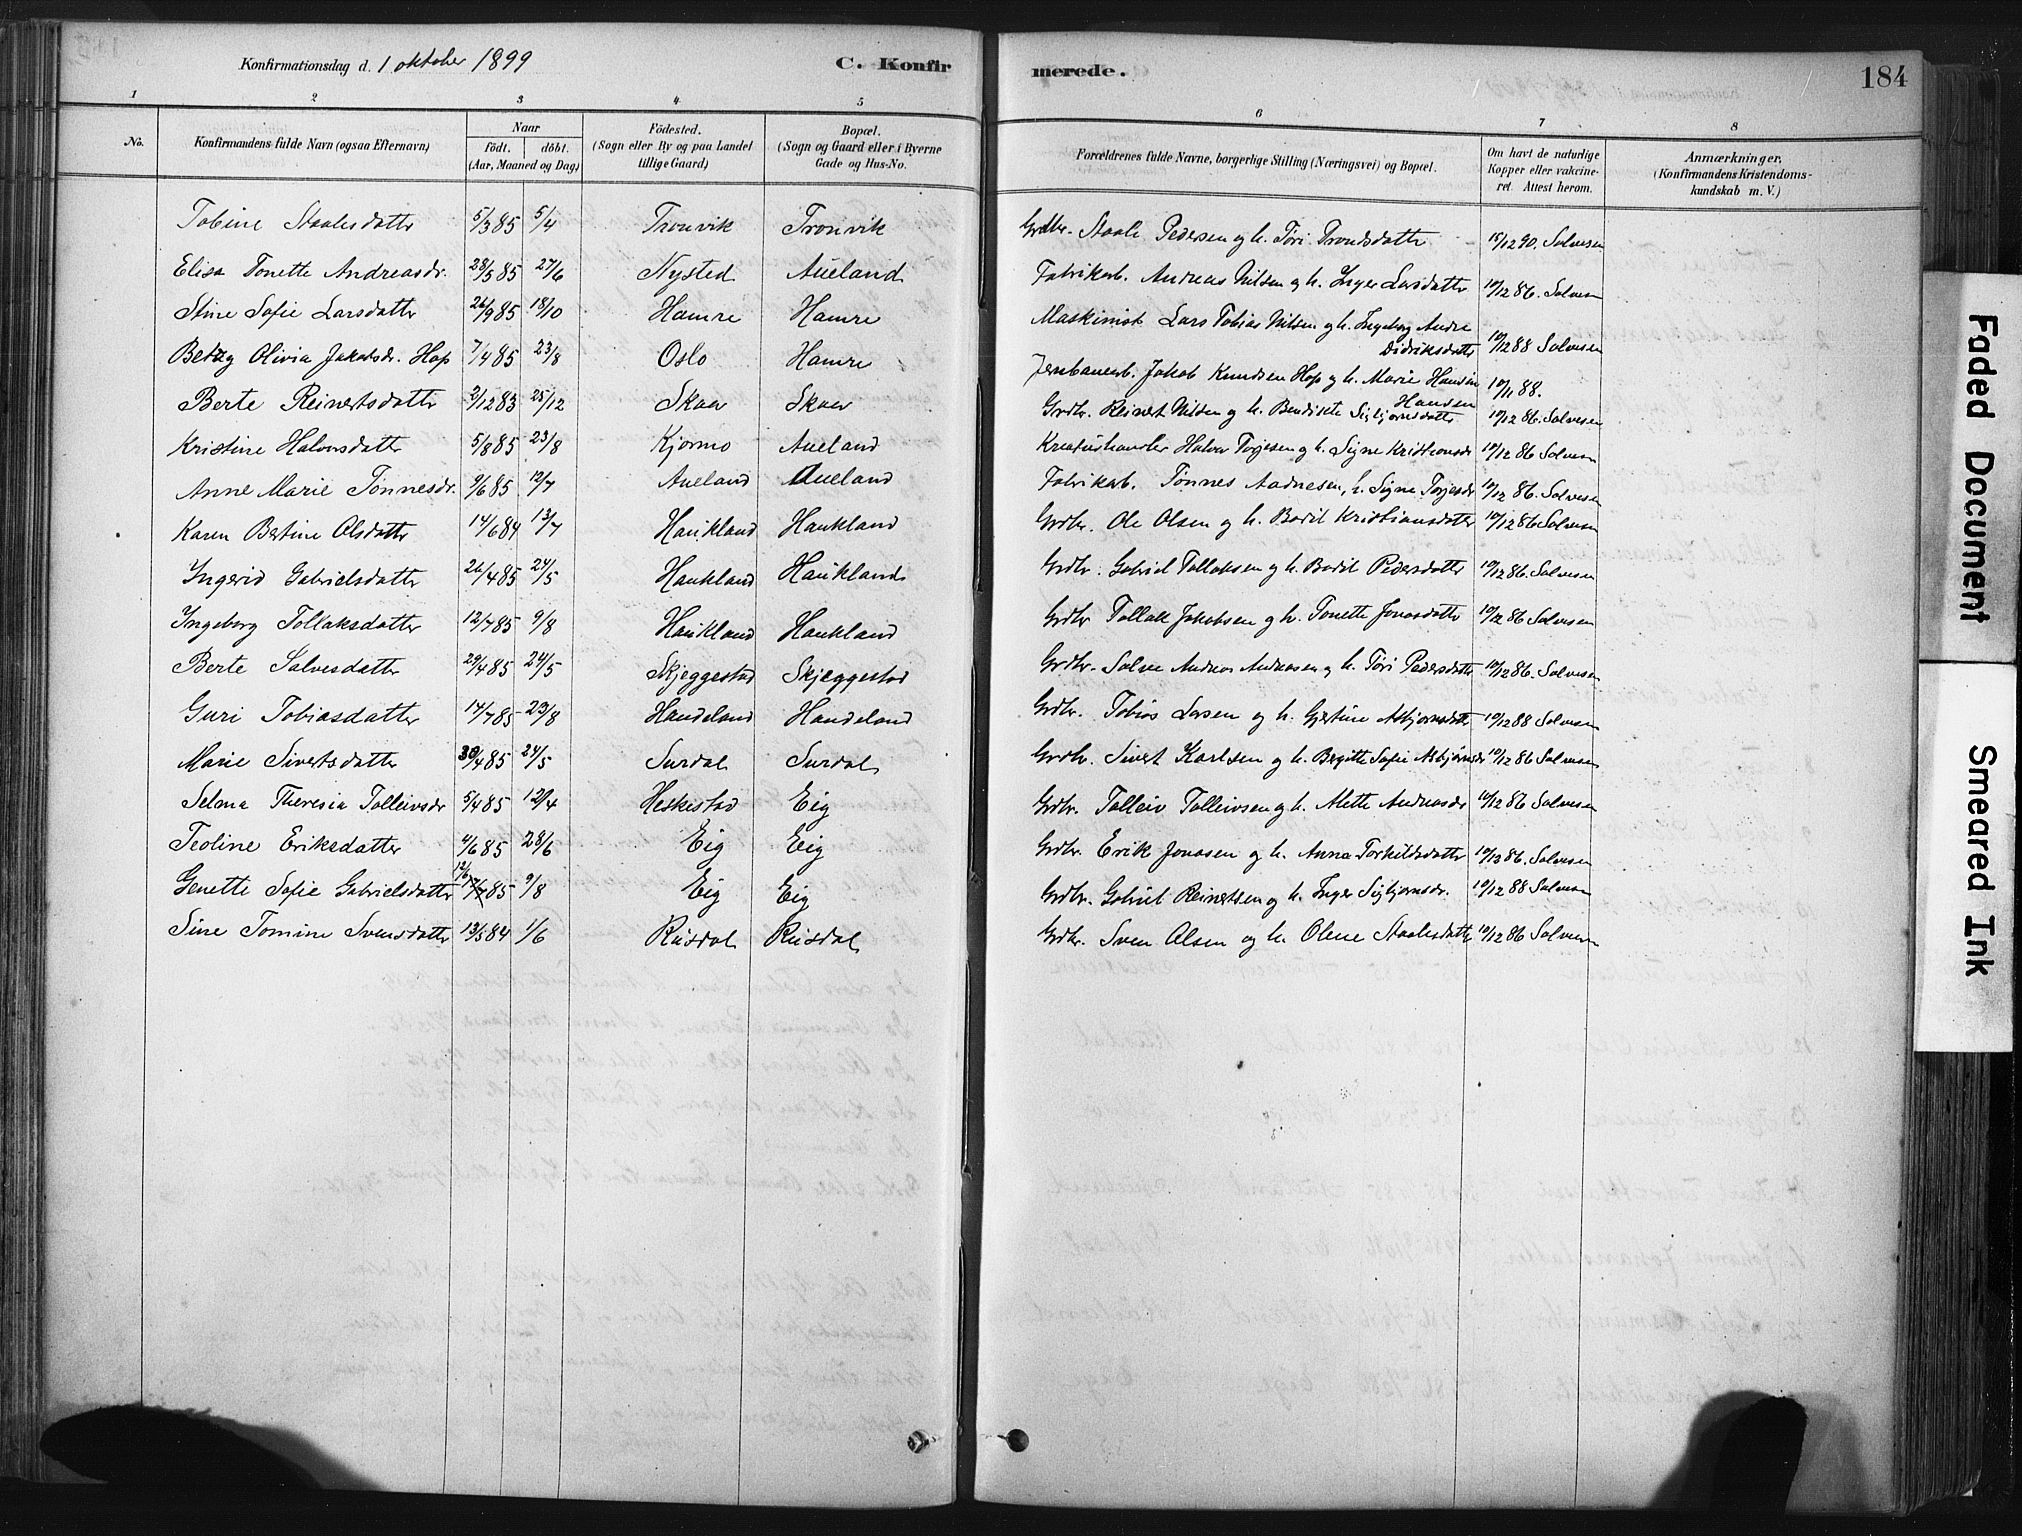 Konfirmationsdag d. 1 oktober 1899 C. Konfirmerede. 184
1 2 3 4 5 6 7 8
No. Konfirmandens fulde Navn (ogsaa Efternavn) Naar født. døbt. (Aar, Maaned og Dag) Fødested. (Sogn eller By og paa Landet tillige Gaard) Bopæl. (Sogn og Gaard eller i Byerne Gade og Hus-No. Forældrenes fulde Navne, borgerlige Stilling (Næringsvei) og Bopæl. Om havt de naturlige Kopper eller vakcineret. Attest herom. Anmærkninger. (Konfirmandens Kristendomskundskab m. V.)
Tobine Staalesdatter 5/3 85 5/4 Tronvik Tronvik Grdbr. Staale Pedersen og h. Tøri Trondsdatter 15/12 90. Salvesen
Elisa Tonette Andreasdr. 28/5 85 27/6 Nysted Aueland Fabrikarb. Andreas Nilsen og h. Inger Larsdatter 10/12 86. Salvesen
Stine Sofie Larsdatter 26/9 85 18/10 Hamre Hamre Maskinist Lars Tobias Nilsen og h. Ingeborg Andre Didriksdatter 10/12 88 Salvesen
Betzy Olivia Jakobsdr. Hop 7/4 85 23/8 Oslo Hamre Jernbanearb. Jakob Knudsen Hop og h. Marie Hansine Hansen 10/11 88.
Berte Reinertsdatter 2/12 83 25/12 Skaar Skaar Grdbr. Reinert Nilsen og h. Bendikte Sigbjørnsdatter 10/12 86. Salvesen
Kristine Halvorsdatter 5/8 85 23/8 Kjørmo Aueland Kreaturhandler Halvor Torjesen og h. Signe Kristiansdr 10/12 86 Salvesen
Anne Marie Tønnesdr. 9/6 85 12/7 Aueland Aueland Fabrikarb. Tønnes Aadnesen, h. Signe Torjesdr 10/12 86. Salvesen
Karen Bertine Olsdatter 14/6 84 13/7 Haukland Haukland Grdbr. Ole Olsen og h. Bodil Kristiansdatter 10/12 86 Salvesen
Ingerid Gabrielsdatter 26/4 85 24/5 Haukland Haukland Grdbr. Gabriel Tollaksen og h. Bodil Pedersdatter 10/12 86. Salvesen
Ingeborg Tollaksdatter 12/7 85 9/8 Haukland Haukland Grdbr. Tollak Jakobsen og h. Tonette Jonasdatter 10/12 86 Salvesen
Berte Salvesdatter 29/4 85 24/5 Skjeggestad Skjeggestad Grdbr. Salve Andreas Andreasen og h. Tøri Pedersdatter 10/12 86. Salvesen
Guri Tobiasdatter 14/7 85 23/8 Handeland Handeland Grdbr. Tobias Larsen og h. Gjertine Asbjørnsdatter 10/12 88 Salvesen
Marie Sivertsdatter 30/4 85 24/5 Surdal Surdal Grdbr. Sivert Karlsen og h. Birgitte Sofie Asbjørnsdr 10/12 86 Salvesen
Selma Theresia Tolleivsdr 5/4 85 12/4 Heskestad Eig Grdbr. Tolleiv Tolleivsen og h. Alette Andreasdr 10/12 86 Salvesen
Teoline Eriksdatter 4/6 85 28/6 Eig Eig Grdbr. Erik Jonasen og h. Anna Torkildsdatter 10/12 86. Salvesen
Genette Sofie Gabrielsdatter 12/6 85 9/8 Eig Eig Grdbr. Gabriel Reinertsen og h. Inger Sigbjørnsdr. 10/12 88 Salvesen
Sine Tomine Svensdatter 13/5 84 1/6 Rusdal Rusdal Grdbr. Sven Olsen og h. Olene Staalesdatter 10/12 86 Salvesen
Faded Document
Smeared Ink